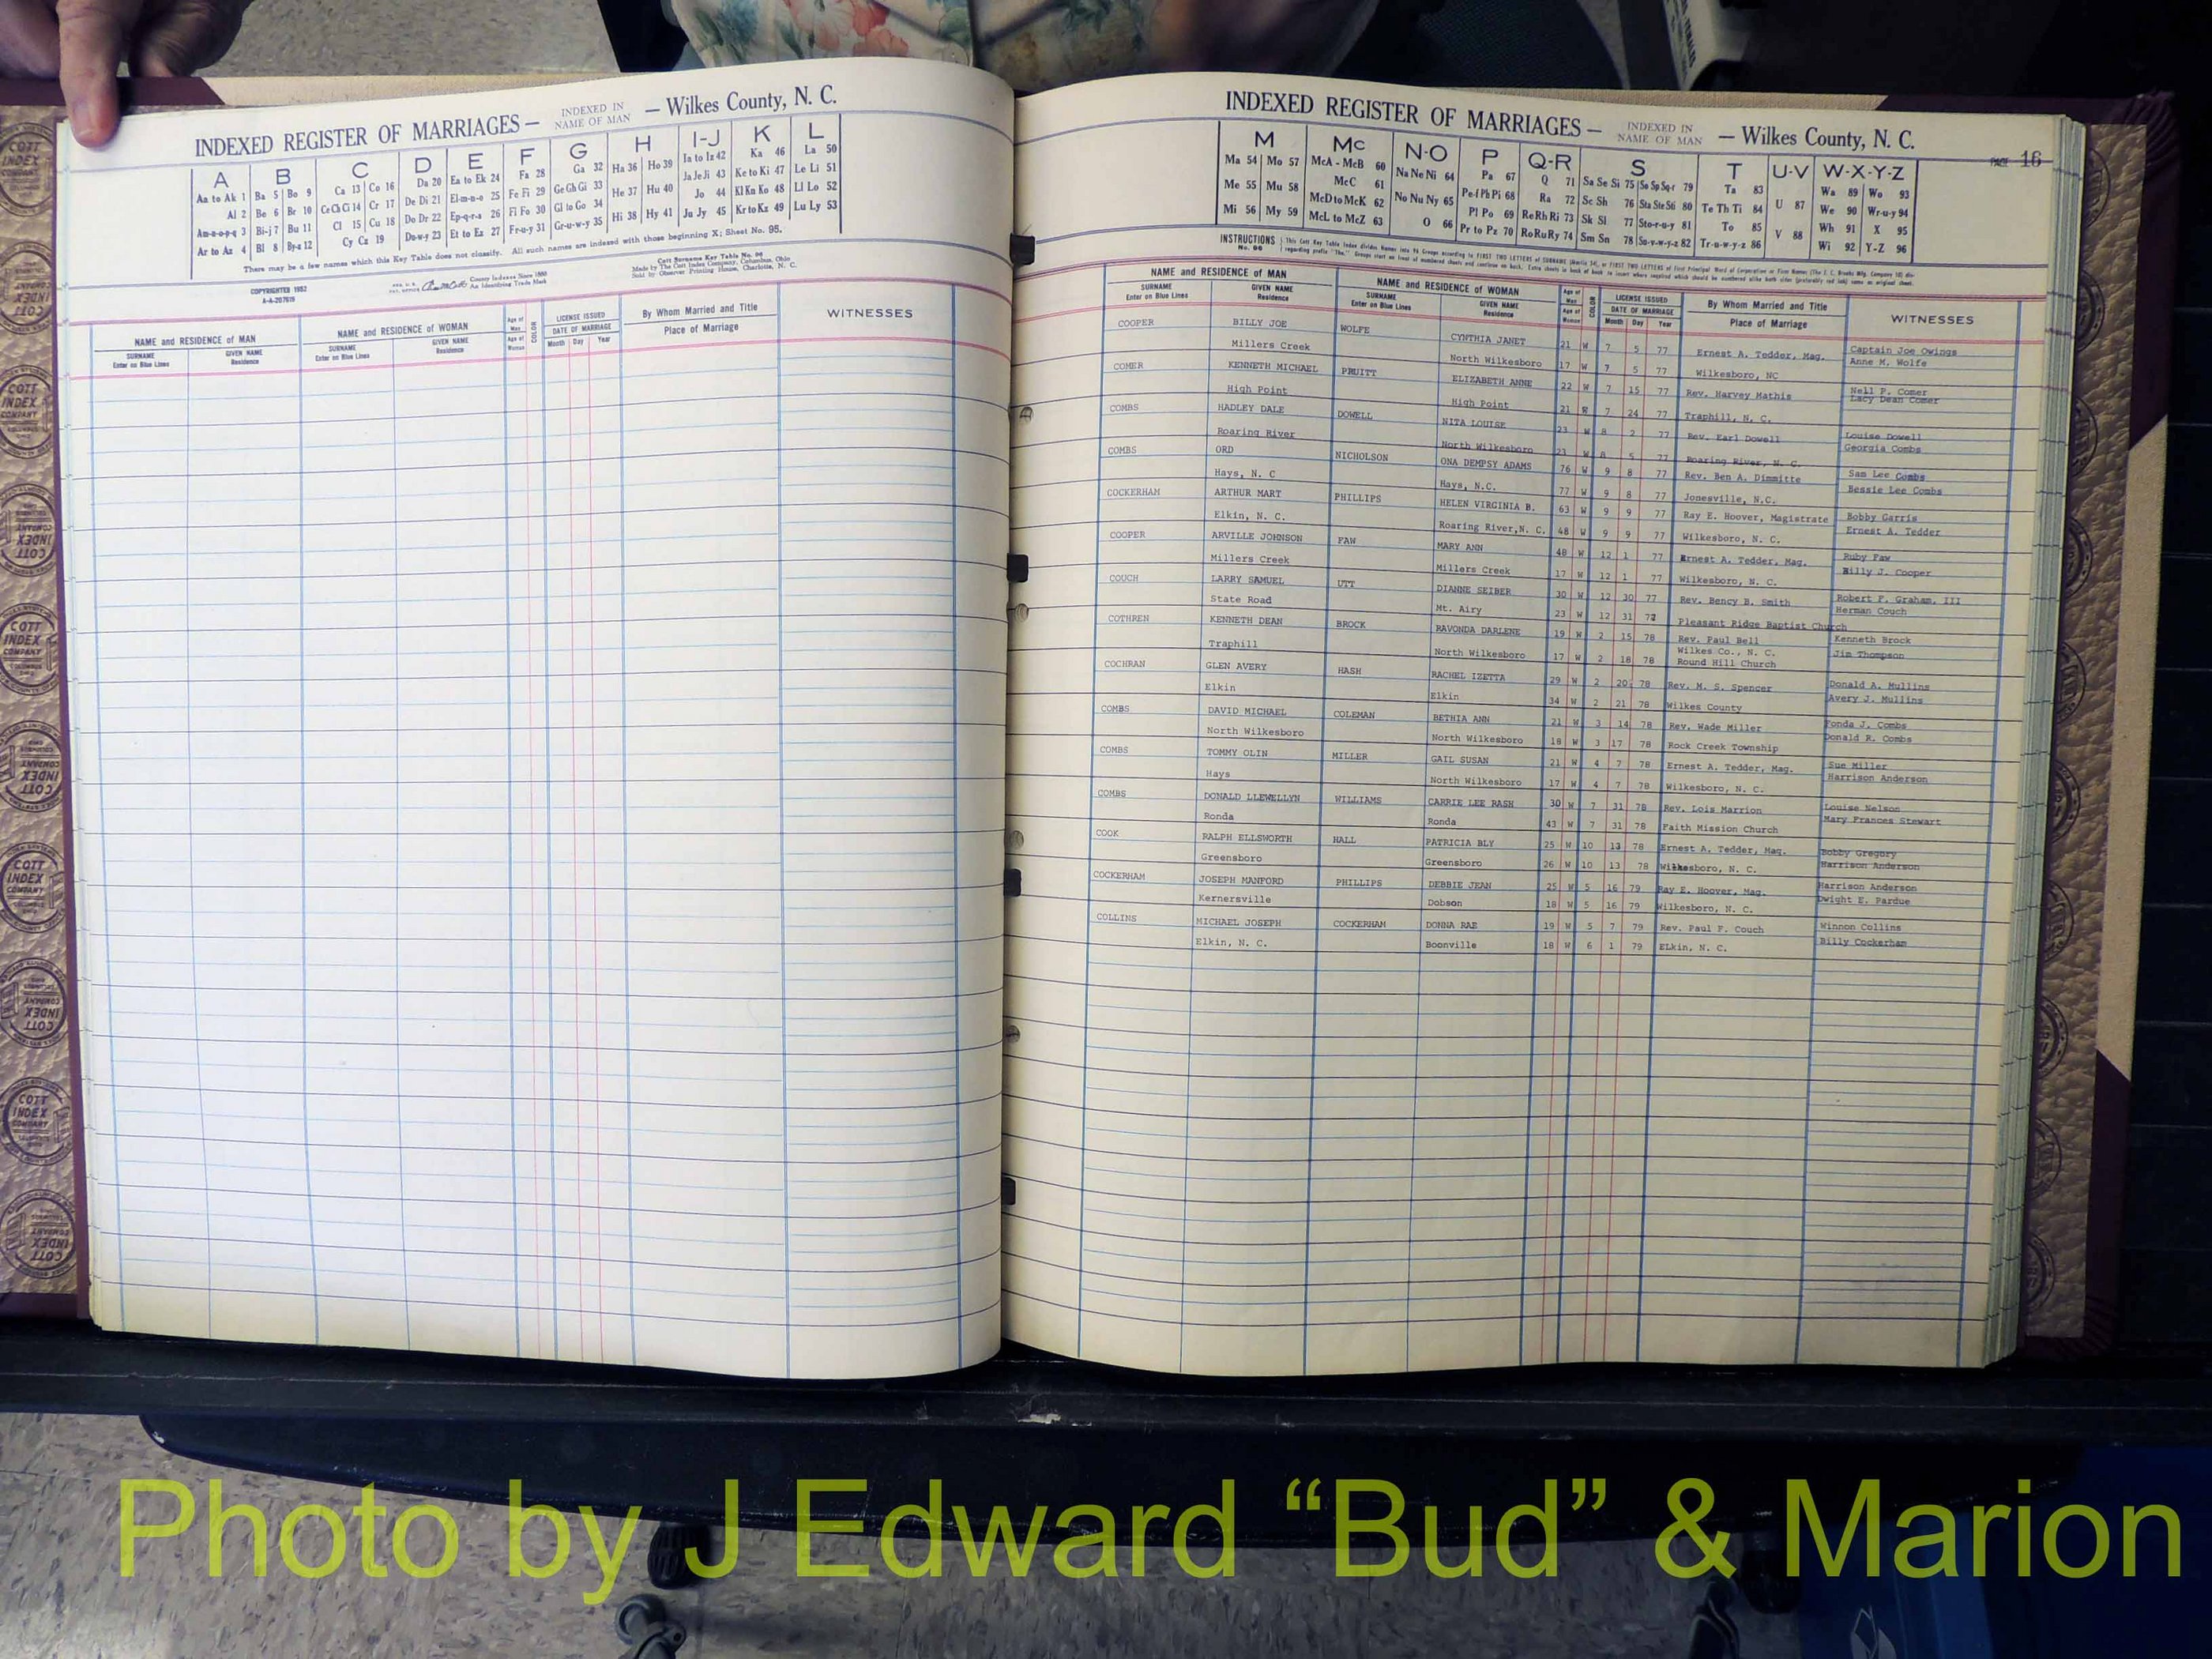 INDEXED REGISTER OF MARRIAGES — INDEXED IN NAME OF MAN — Wilkes County, N. C.
A B C D E F G H I-J K L
Aa to Ak 1 Ba 5 Bo 9 Ca 13 Co 16 Da 20 Ea to Ek 24 Fa 28 Ga 32 Ha 36 Ho 39 Ia to Iz 42 Ka 46 La 50
Al 2 Be 6 Br 10 Ce Ch Ci 14 Cr 17 De Di 21 El-m-n-o 25 Fe Fi 29 Ge Gh Gi 33 He 37 Hu 40 Ja Je Ji 43 Ke to Ki 47 Le Li 51
Am-n-o-p-q 3 Bi-j 7 Bu 11 Cl 15 Cu 18 Do Dr 22 Ep-q-r-s 26 Fl Fo 30 Gl to Go 34 Hi 38 Hy 41 Jo 44 Kl Kn Ko 48 Ll Lo 52
Ar to Az 4 Bl 8 By-z 12 Cy Cz 19 Du-w-y 23 Et to Ez 27 Fr-u-y 31 Gr-u-w-y 35 Ju Jy 45 Kr to Kz 49 Lu Ly 53
There may be a few names which this Key Table does not classify. All such names are indexed with those beginning X; Sheet No. 95.
COPYRIGHTED 1952
A-A-207619
County Indexes Since 1880
An Identifying Trade Mark
Cott Surname Key Table No. 96
Made by The Cott Index Company, Columbus, Ohio
Sold by Observer Printing House, Charlotte, N. C.
NAME and RESIDENCE OF MAN NAME and RESIDENCE OF WOMAN Age of Man Age of Woman COLOR LICENSE ISSUED DATE OF MARRIAGE By Whom Married and Title WITNESSES
SURNAME Enter on Blue Lines GIVEN NAME Residence SURNAME Enter on Blue Lines GIVEN NAME Residence Month Day Year Place of Marriage
INDEXED REGISTER OF MARRIAGES — INDEXED IN NAME OF MAN — Wilkes County, N. C.
PAGE 16
M Mc N-O P Q-R S T U-V W-X-Y-Z
Ma 54 Mo 57 McA - McB 60 Na Ne Ni 64 Pa 67 Q 71 Sa Se Si 75 So Sp Sq-r 79 Ta 83 U 87 Wa 89 Wo 93
Me 55 Mu 58 McC 61 No Nu Ny 65 Pe-f Ph Pi 68 Ra 72 Sc Sh 76 Sta Ste Sti 80 Te Th Ti 84 V 88 We 90 Wr-u-y 94
Mi 56 My 59 McD to McK 62 O 66 Pl Po 69 Re Rh Ri 73 Sk Sl 77 Sto-r-u-y 81 To 85 Wh 91 X 95
McL to McZ 63 Pr to Pz 70 Ro Ru Ry 74 Sm Sn 78 Su-v-w-y-z 82 Tr-u-w-y-z 86 Wi 92 Y-Z 96
INSTRUCTIONS No. 96
NAME and RESIDENCE OF MAN NAME and RESIDENCE OF WOMAN Age of Man Age of Woman COLOR LICENSE ISSUED DATE OF MARRIAGE By Whom Married and Title WITNESSES
SURNAME Enter on Blue Lines GIVEN NAME Residence SURNAME Enter on Blue Lines GIVEN NAME Residence Month Day Year Place of Marriage
COOPER BILLY JOE WOLFE CYNTHIA JANET 21 W 7 5 77 Ernest A. Tedder, Mag. Captain Joe Owings
Millers Creek North Wilkesboro 17 W 7 5 77 Wilkesboro, NC Anne M. Wolfe
COMER KENNETH MICHAEL PRUITT ELIZABETH ANNE 22 W 7 15 77 Rev. Harvey Mathis Nell P. Comer
High Point High Point 21 W 7 24 77 Traphill, N. C. Lacy Dean Comer
COMBS HADLEY DALE DOWELL NITA LOUISE 23 W 8 2 77 Rev. Earl Dowell Louise Dowell
Roaring River North Wilkesboro 21 W 8 5 77 Roaring River, N. C. Georgia Combs
COMBS ORD NICHOLSON ONA DEMPSY ADAMS 76 W 9 8 77 Rev. Ben A. Dimmitte Sam Lee Combs
Hays, N. C Hays, N.C. 77 W 9 8 77 Jonesville, N.C. Bessie Lee Combs
COCKERHAM ARTHUR MART PHILLIPS HELEN VIRGINIA B. 63 W 9 9 77 Ray E. Hoover, Magistrate Bobby Garris
Elkin, N. C. Roaring River, N. C. 48 W 9 9 77 Wilkesboro, N. C. Ernest A. Tedder
COOPER ARVILLE JOHNSON FAW MARY ANN 48 W 12 1 77 Ernest A. Tedder, Mag. Ruby Faw
Millers Creek Millers Creek 17 W 12 1 77 Wilkesboro, N. C. Billy J. Cooper
COUCH LARRY SAMUEL UTT DIANNE SEIBER 30 W 12 30 77 Rev. Bency B. Smith Robert F. Graham, III
State Road Mt. Airy 23 W 12 31 77 Pleasant Ridge Baptist Church Herman Couch
COTHREN KENNETH DEAN BROCK RAVONDA DARLENE 19 W 2 15 78 Rev. Paul Bell Kenneth Brock
Traphill North Wilkesboro 17 W 2 18 78 Wilkes Co., N. C. Round Hill Church Jim Thompson
COCHRAN GLEN AVERY HASH RACHEL IZETTA 29 W 2 20 78 Rev. M. S. Spencer Donald A. Mullins
Elkin Elkin 34 W 2 21 78 Wilkes County Avery J. Mullins
COMBS DAVID MICHAEL COLEMAN BETHIA ANN 21 W 3 14 78 Rev. Wade Miller Fonda J. Combs
North Wilkesboro North Wilkesboro 18 W 3 17 78 Rock Creek Township Donald R. Combs
COMBS TOMMY OLIN MILLER GAIL SUSAN 21 W 4 7 78 Ernest A. Tedder, Mag. Sue Miller
Hays North Wilkesboro 17 W 4 7 78 Wilkesboro, N. C. Harrison Anderson
COMBS DONALD LLEWELLYN WILLIAMS CARRIE LEE RASH 30 W 7 31 78 Rev. Lois Marrion Louise Nelson
Ronda Ronda 43 W 7 31 78 Faith Mission Church Mary Frances Stewart
COOK RALPH ELLSWORTH HALL PATRICIA BLY 25 W 10 13 78 Ernest A. Tedder, Mag. Bobby Gregory
Greensboro Greensboro 26 W 10 13 78 Wilkesboro, N. C. Harrison Anderson
COCKERHAM JOSEPH MANFORD PHILLIPS DEBBIE JEAN 25 W 5 16 79 Ray E. Hoover, Mag. Harrison Anderson
Kernersville Dobson 18 W 5 16 79 Wilkesboro, N. C. Dwight E. Pardue
COLLINS MICHAEL JOSEPH COCKERHAM DONNA RAE 19 W 5 7 79 Rev. Paul F. Couch Winnon Collins
Elkin, N. C. Boonville 18 W 6 1 79 ELkin, N. C. Billy Cockerham
Photo by J Edward “Bud” & Marion